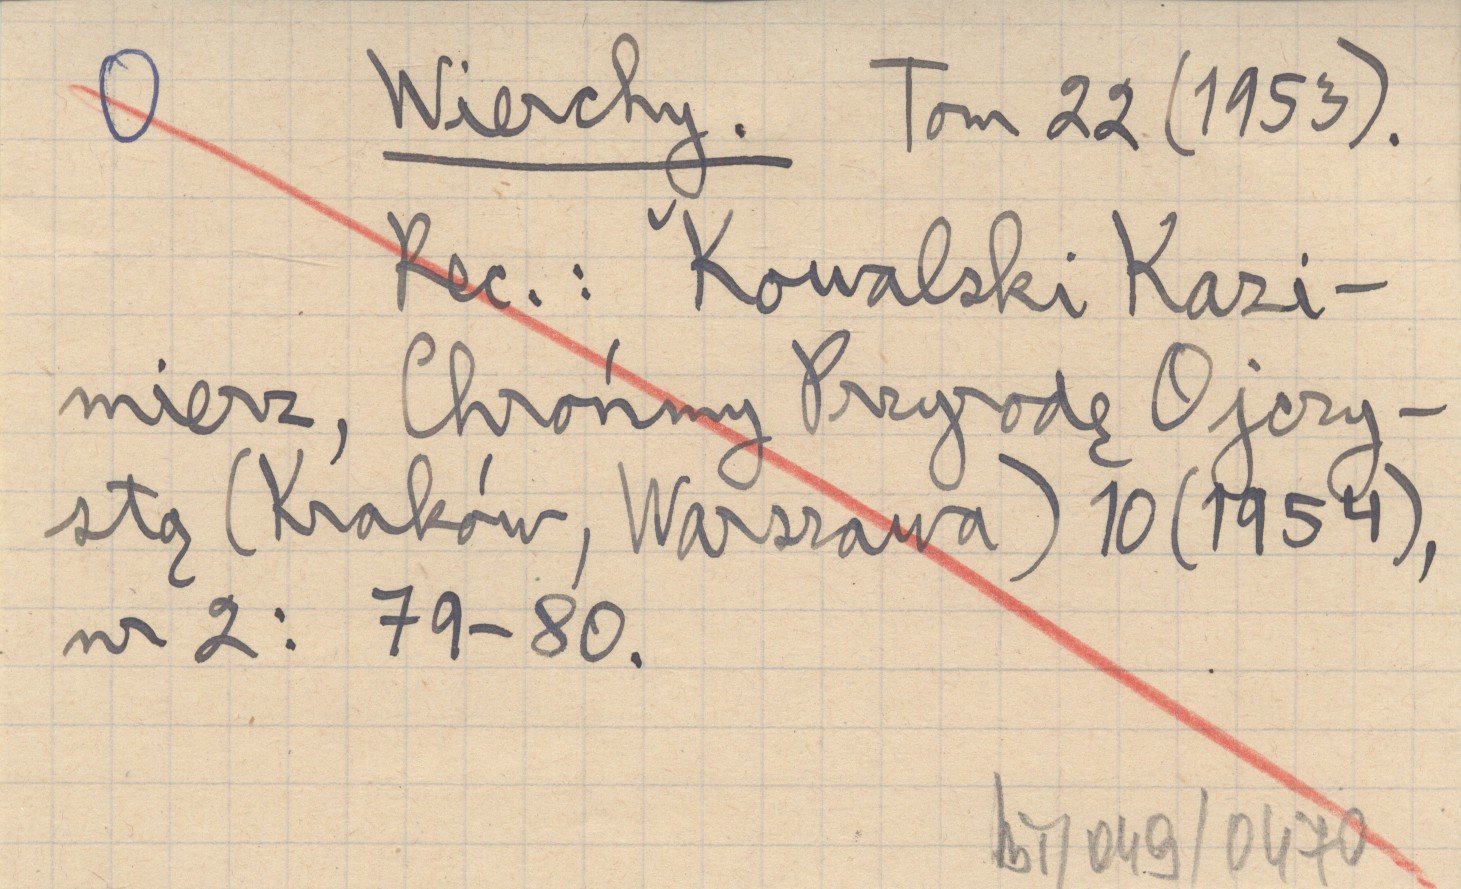 O Wierchy. Tom 22 (1953).
Rec.: ˇKowalski Kazi-
mierz, Chrońmy Przyrodę Ojczy-
stą (Kraków, Warszawa) 10 (1954),
nr 2: 79-80.
/049/0470